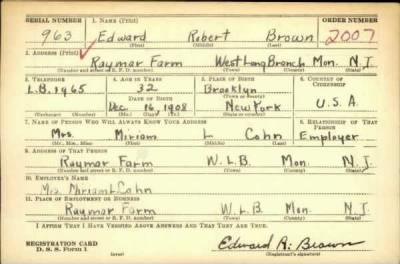 SERIAL NUMBER 1. NAME (Print) ORDER NUMBER
963 Edward Robert Brown 2007
(First) (Middle) (Last)
2. ADDRESS (Print)
Raymar Farm West Long Branch Mon. N.J.
(Number and street or R. F. D. number) (Town) (County) (State)
3. TELEPHONE 4. AGE IN YEARS 5. PLACE OF BIRTH 6. COUNTRY OF CITIZENSHIP
L.B. 1965 32 Brooklyn
DATE OF BIRTH (Town or county)
Dec 16 1908 New York U.S.A.
(Exchange) (Number) (Mo.) (Day) (Yr.) (State or country)
7. NAME OF PERSON WHO WILL ALWAYS KNOW YOUR ADDRESS 8. RELATIONSHIP OF THAT PERSON
Mrs. Miriam L Cohn Employer
(Mr., Mrs., Miss) (First) (Middle) (Last)
9. ADDRESS OF THAT PERSON
Raymar Farm W.L.B. Mon. N.J.
(Number and street or R. F. D. number) (Town) (County) (State)
10. EMPLOYER'S NAME
Mrs. Miriam L Cohn
11. PLACE OF EMPLOYMENT OR BUSINESS
Raymar Farm W.L.B. Mon. N.J.
(Number and street or R. F. D. number) (Town) (County) (State)
I AFFIRM THAT I HAVE VERIFIED ABOVE ANSWERS AND THAT THEY ARE TRUE.
REGISTRATION CARD
D. S. S. Form 1 (over) Edward R. Brown
(Registrant's signature)